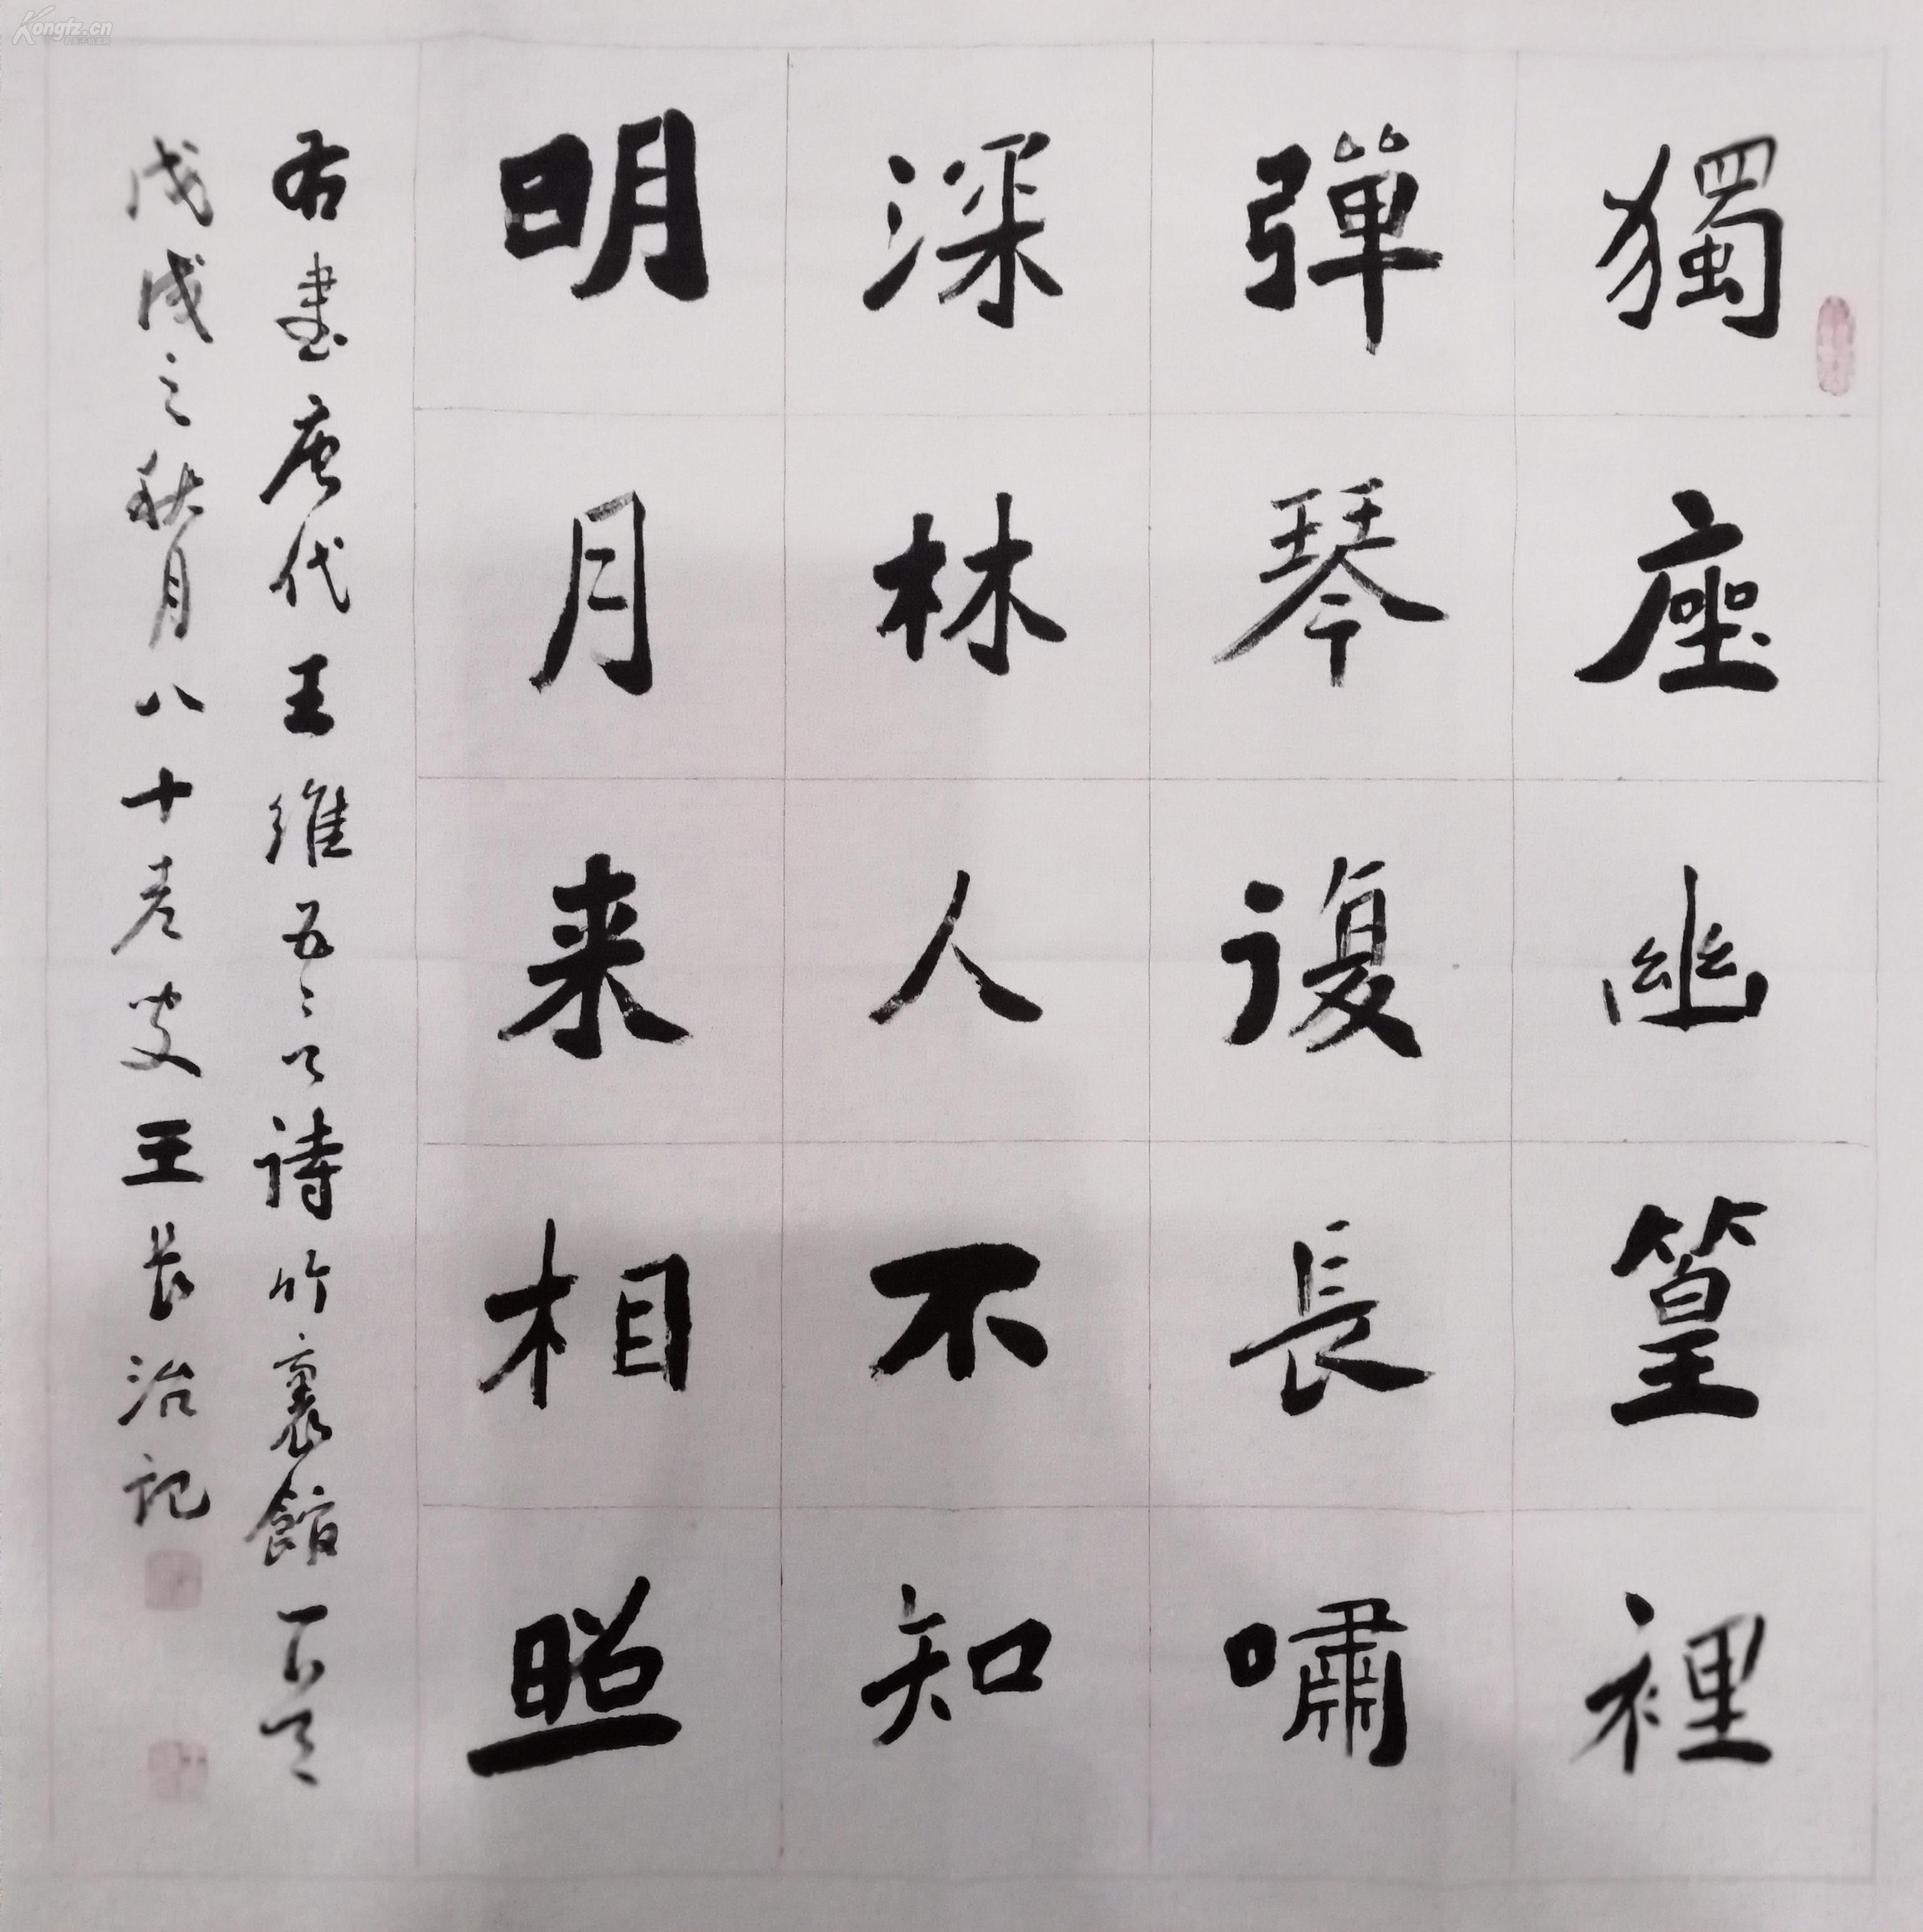 獨座幽篁裡
彈琴複長嘯
深林人不知
明月来相照
右書唐代王維五言詩竹裏館一首
戊戌之秋月八十老叟王長治記
Kongfz.cn